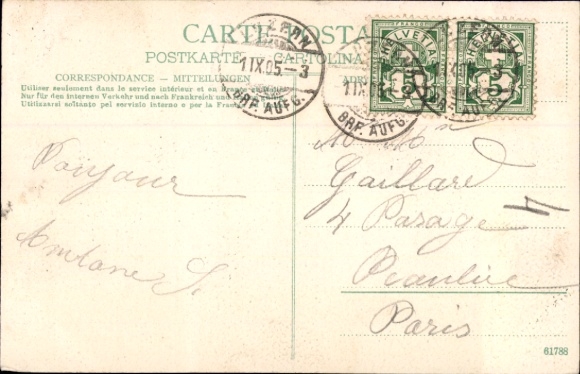 CARTE POSTA
POSTKARTE CARTOLINA
CORRESPONDANCE - MITTEILUNGEN
Utiliser seulement dans le service intérieur et
Nur für den internen Verkehr und nach Frankreich und
Utilizzarsi soltanto pel servizio interno e per la
ADR
HELVETIA
5
HELVETIA
5
1 IX 05 - 3
BRF. AUFG.
1 IX 05
BRF. AUFG.
BRF. AUFG.
Bonjour
M M
Gaillard
4 Pasage
Paris
61788